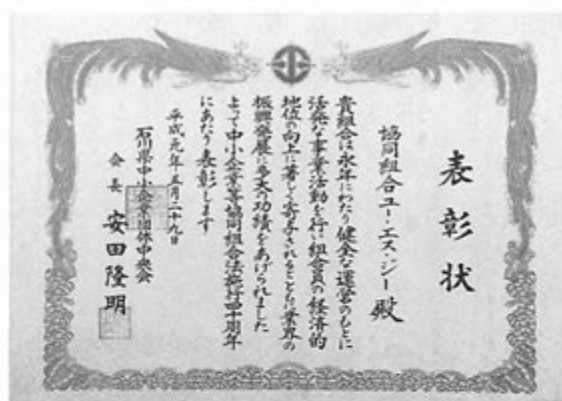 表彰状
協同組合ユー・エス・ジー殿
貴組合は永年にわたり健全な運営のもとに
活発な事業活動を行い組合員の経済的
地位の向上に著しく寄与されるとともに業界の
振興発展に多大の功績をあげられました
よって中小企業等協同組合法施行四十周年
にあたり表彰します
平成元年五月二十九日
石川県中小企業団体中央会
会長 安田隆明